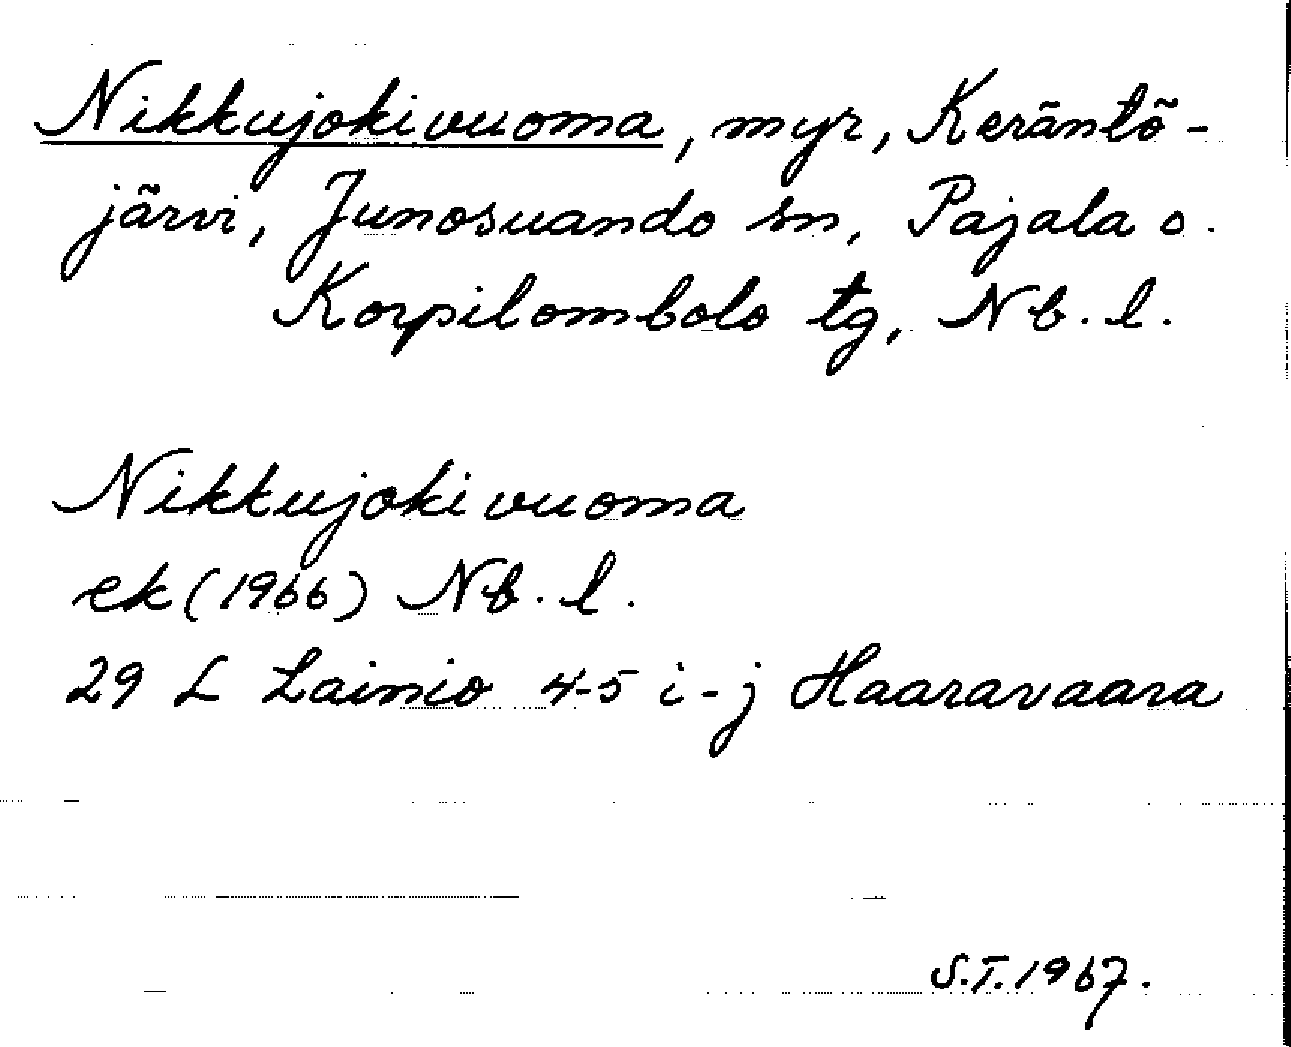 Nikkujokivuoma, myr, Keräntö-
järvi, Junosuando sn, Pajala o.
Korpilombolo tg, Nb. l.
Nikkujokivuoma
ek (1966) Nb. l.
29 L Lainio 4-5 i-j Haaravaara
S.T. 1967.